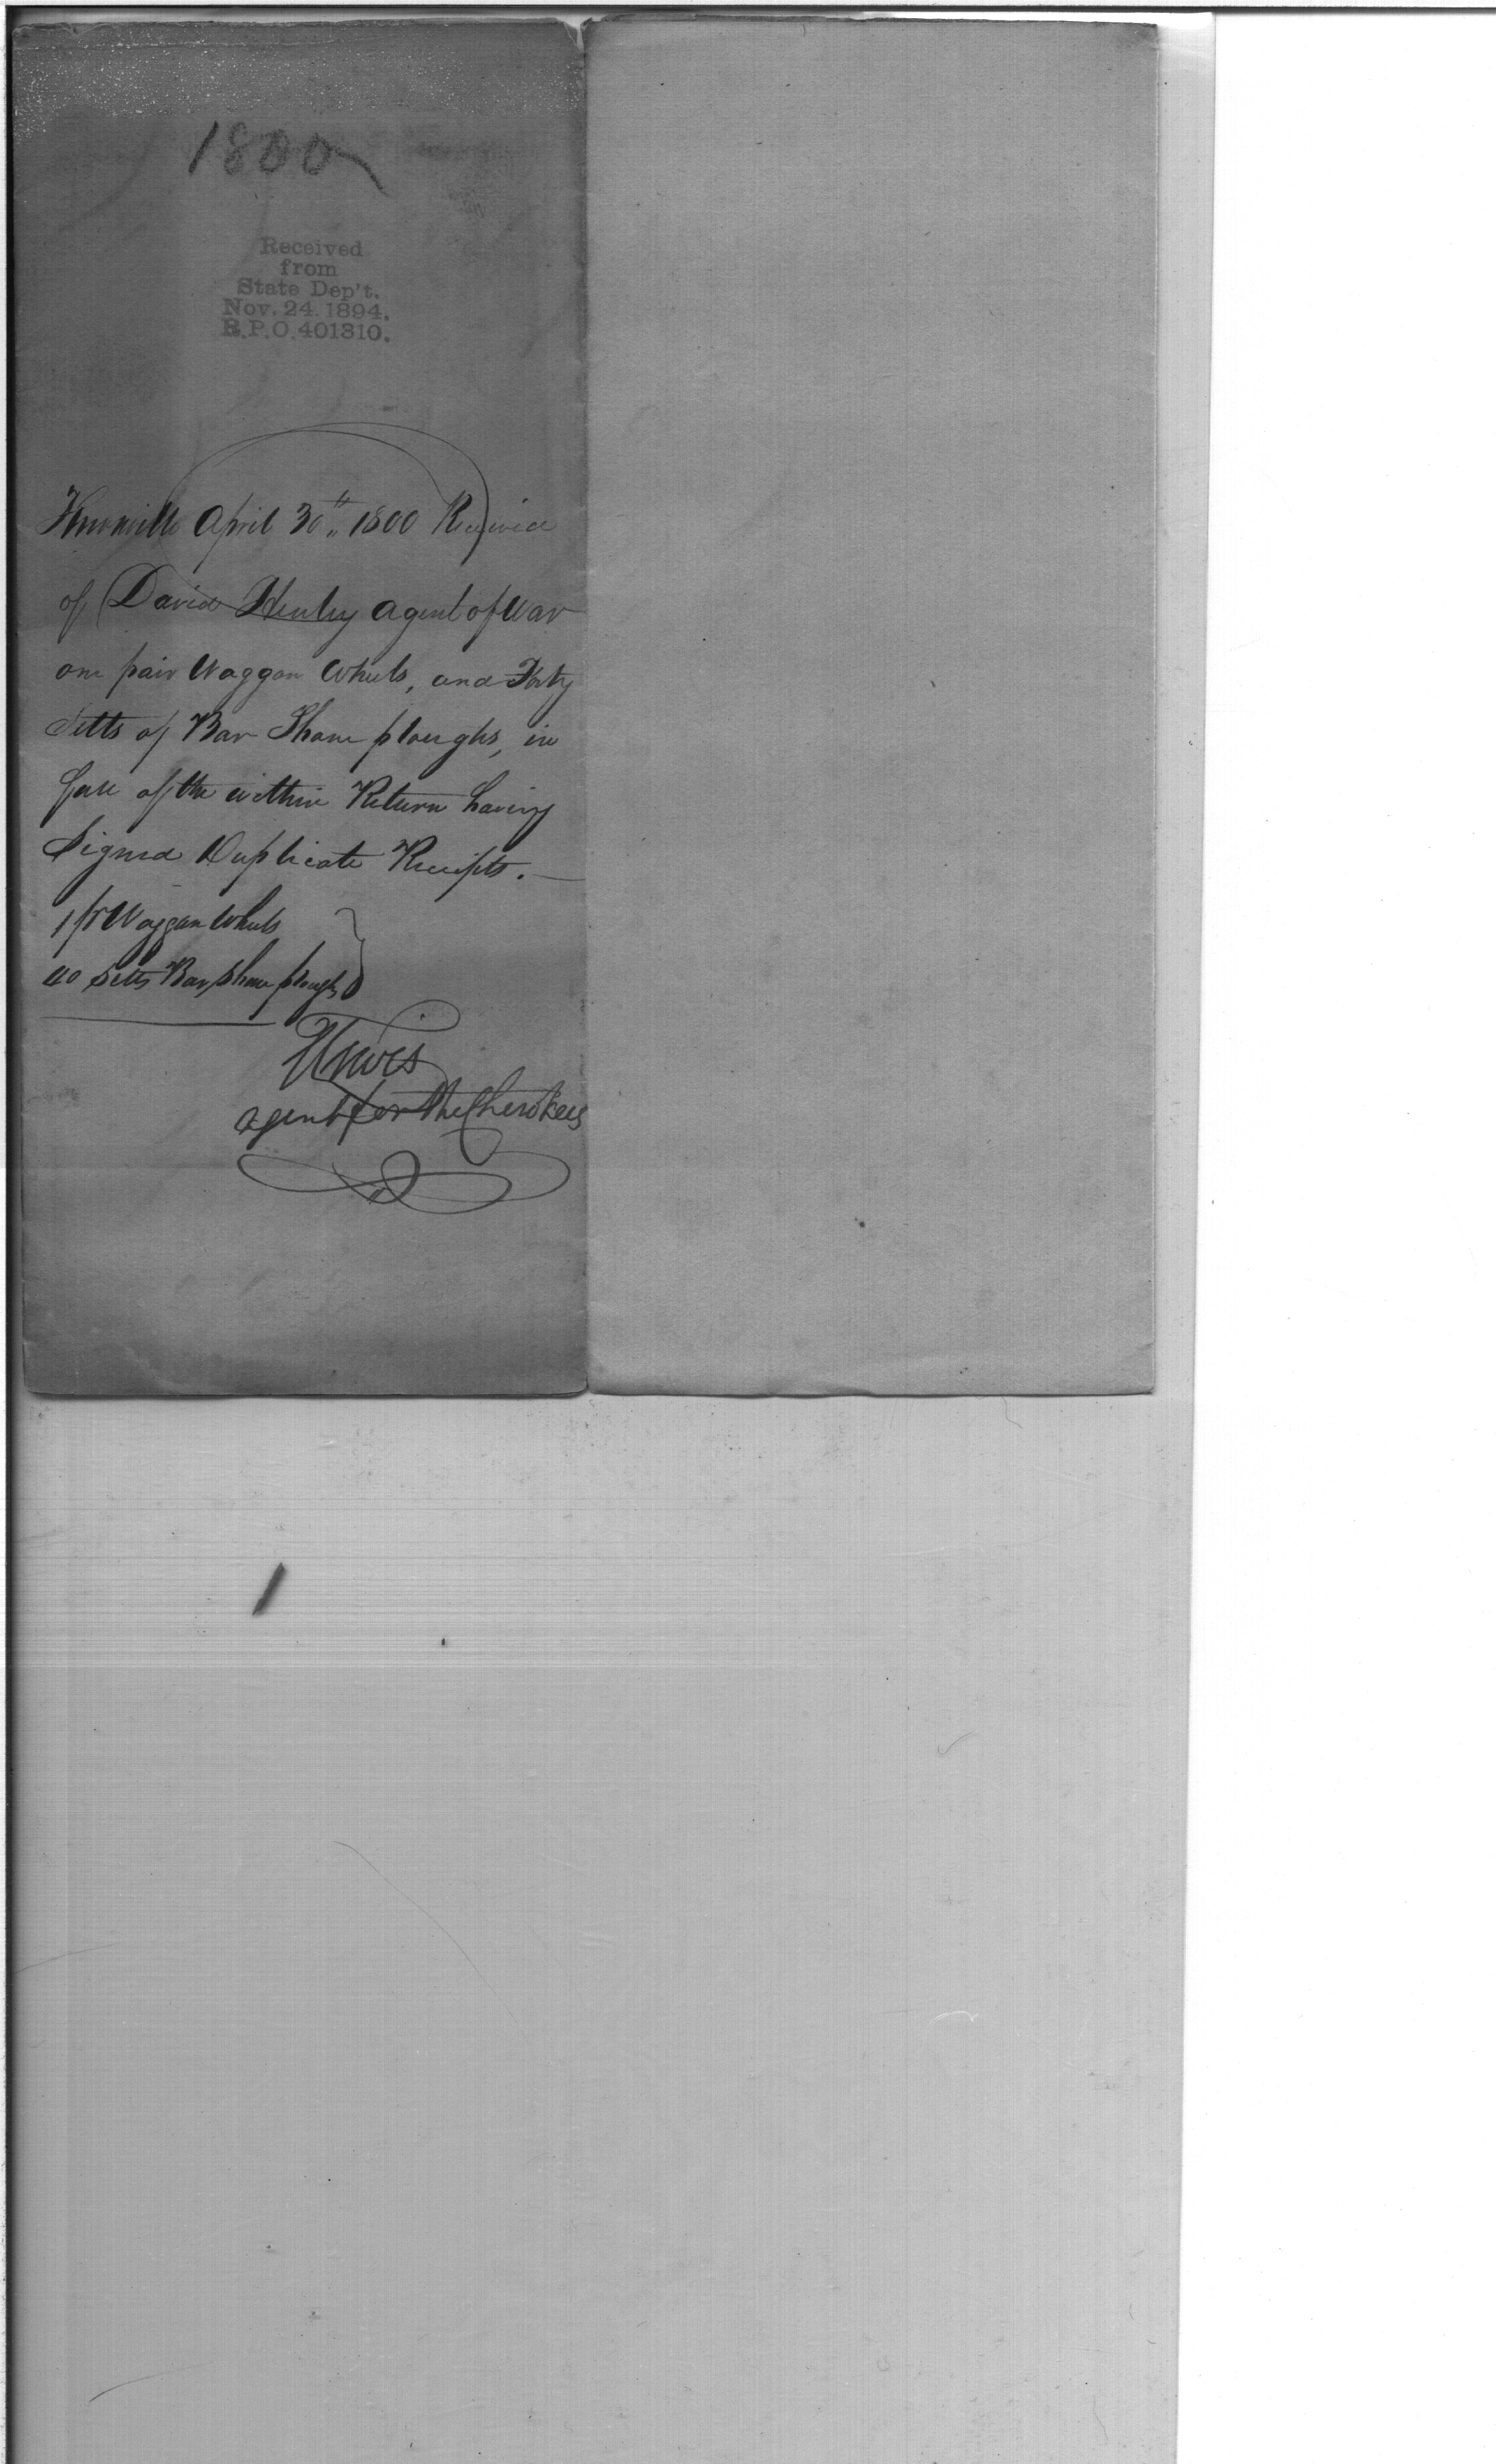 1800
Received
from
State Dep't.
Nov. 24. 1894.
R.P.O. 401310.
Knoxville April 30th 1800 Received
of David Henley Agent of War
one pair Waggon Wheels, and Forty
Setts of Bar Share ploughs, in
full of the within Return having
Signed Duplicate Receipts.
1 pr Waggon Wheels
40 Setts Bar Share ploughs
agent for the Cherokees